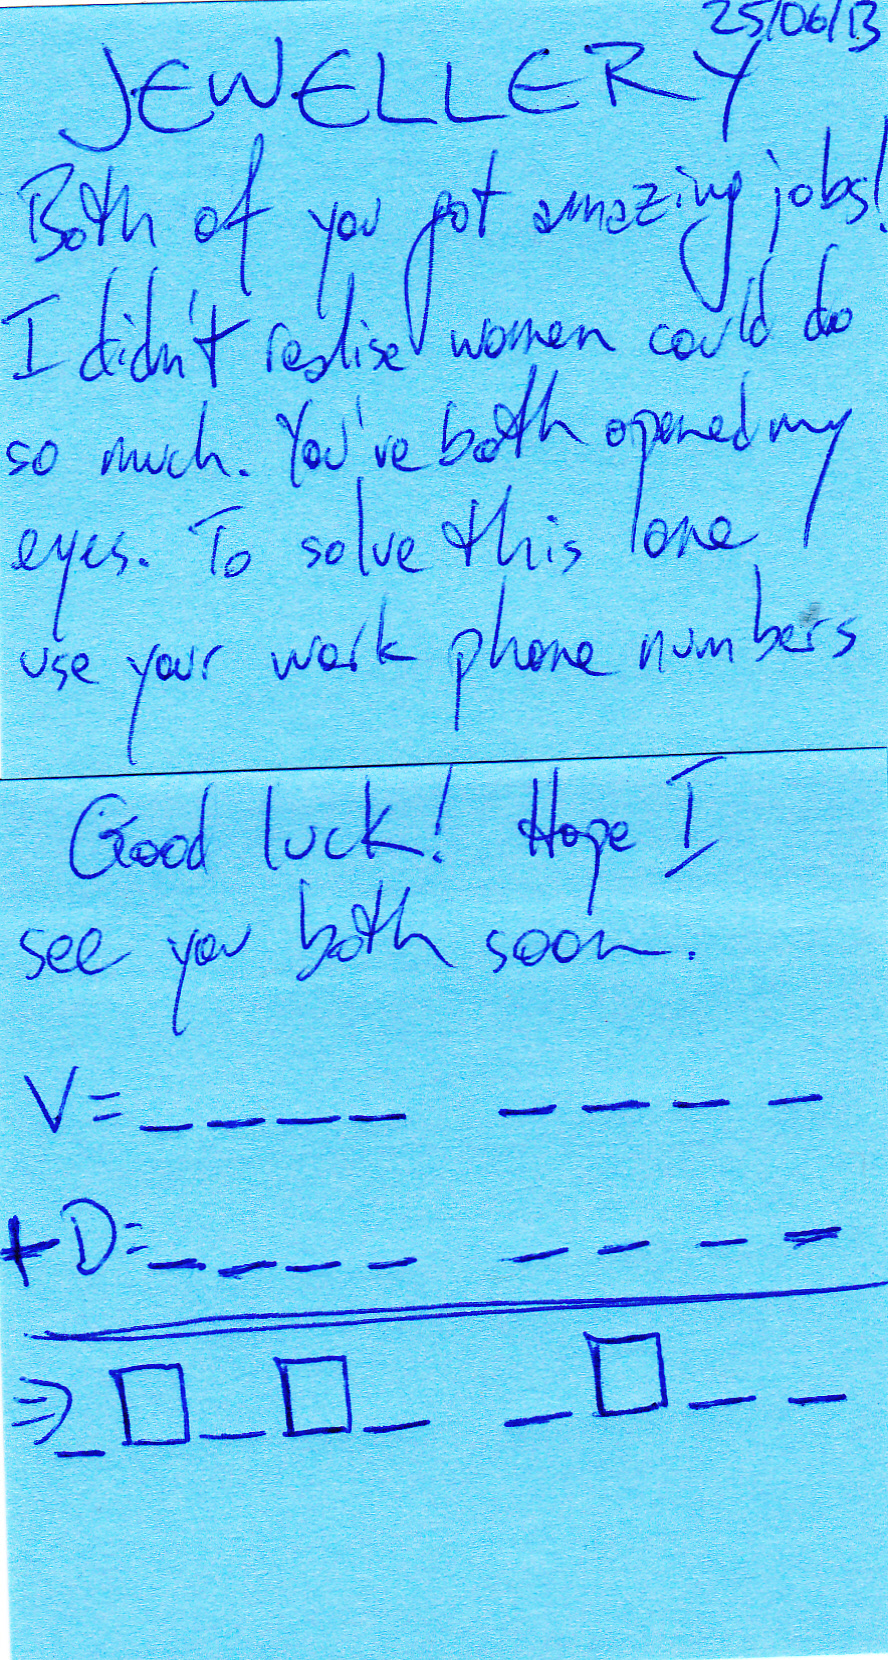 25/06/13
JEWELLERY
Both of you got amazing jobs!
I didn't realise women could do
so much. You've both opened my
eyes. To solve this one
use your work phone numbers
Good luck! Hope I
see you both soon.
V= _ _ _ _ _ _ _ _
+ D= _ _ _ _ _ _ _ _
⇒ _ □ _ □ _ _ □ _ _